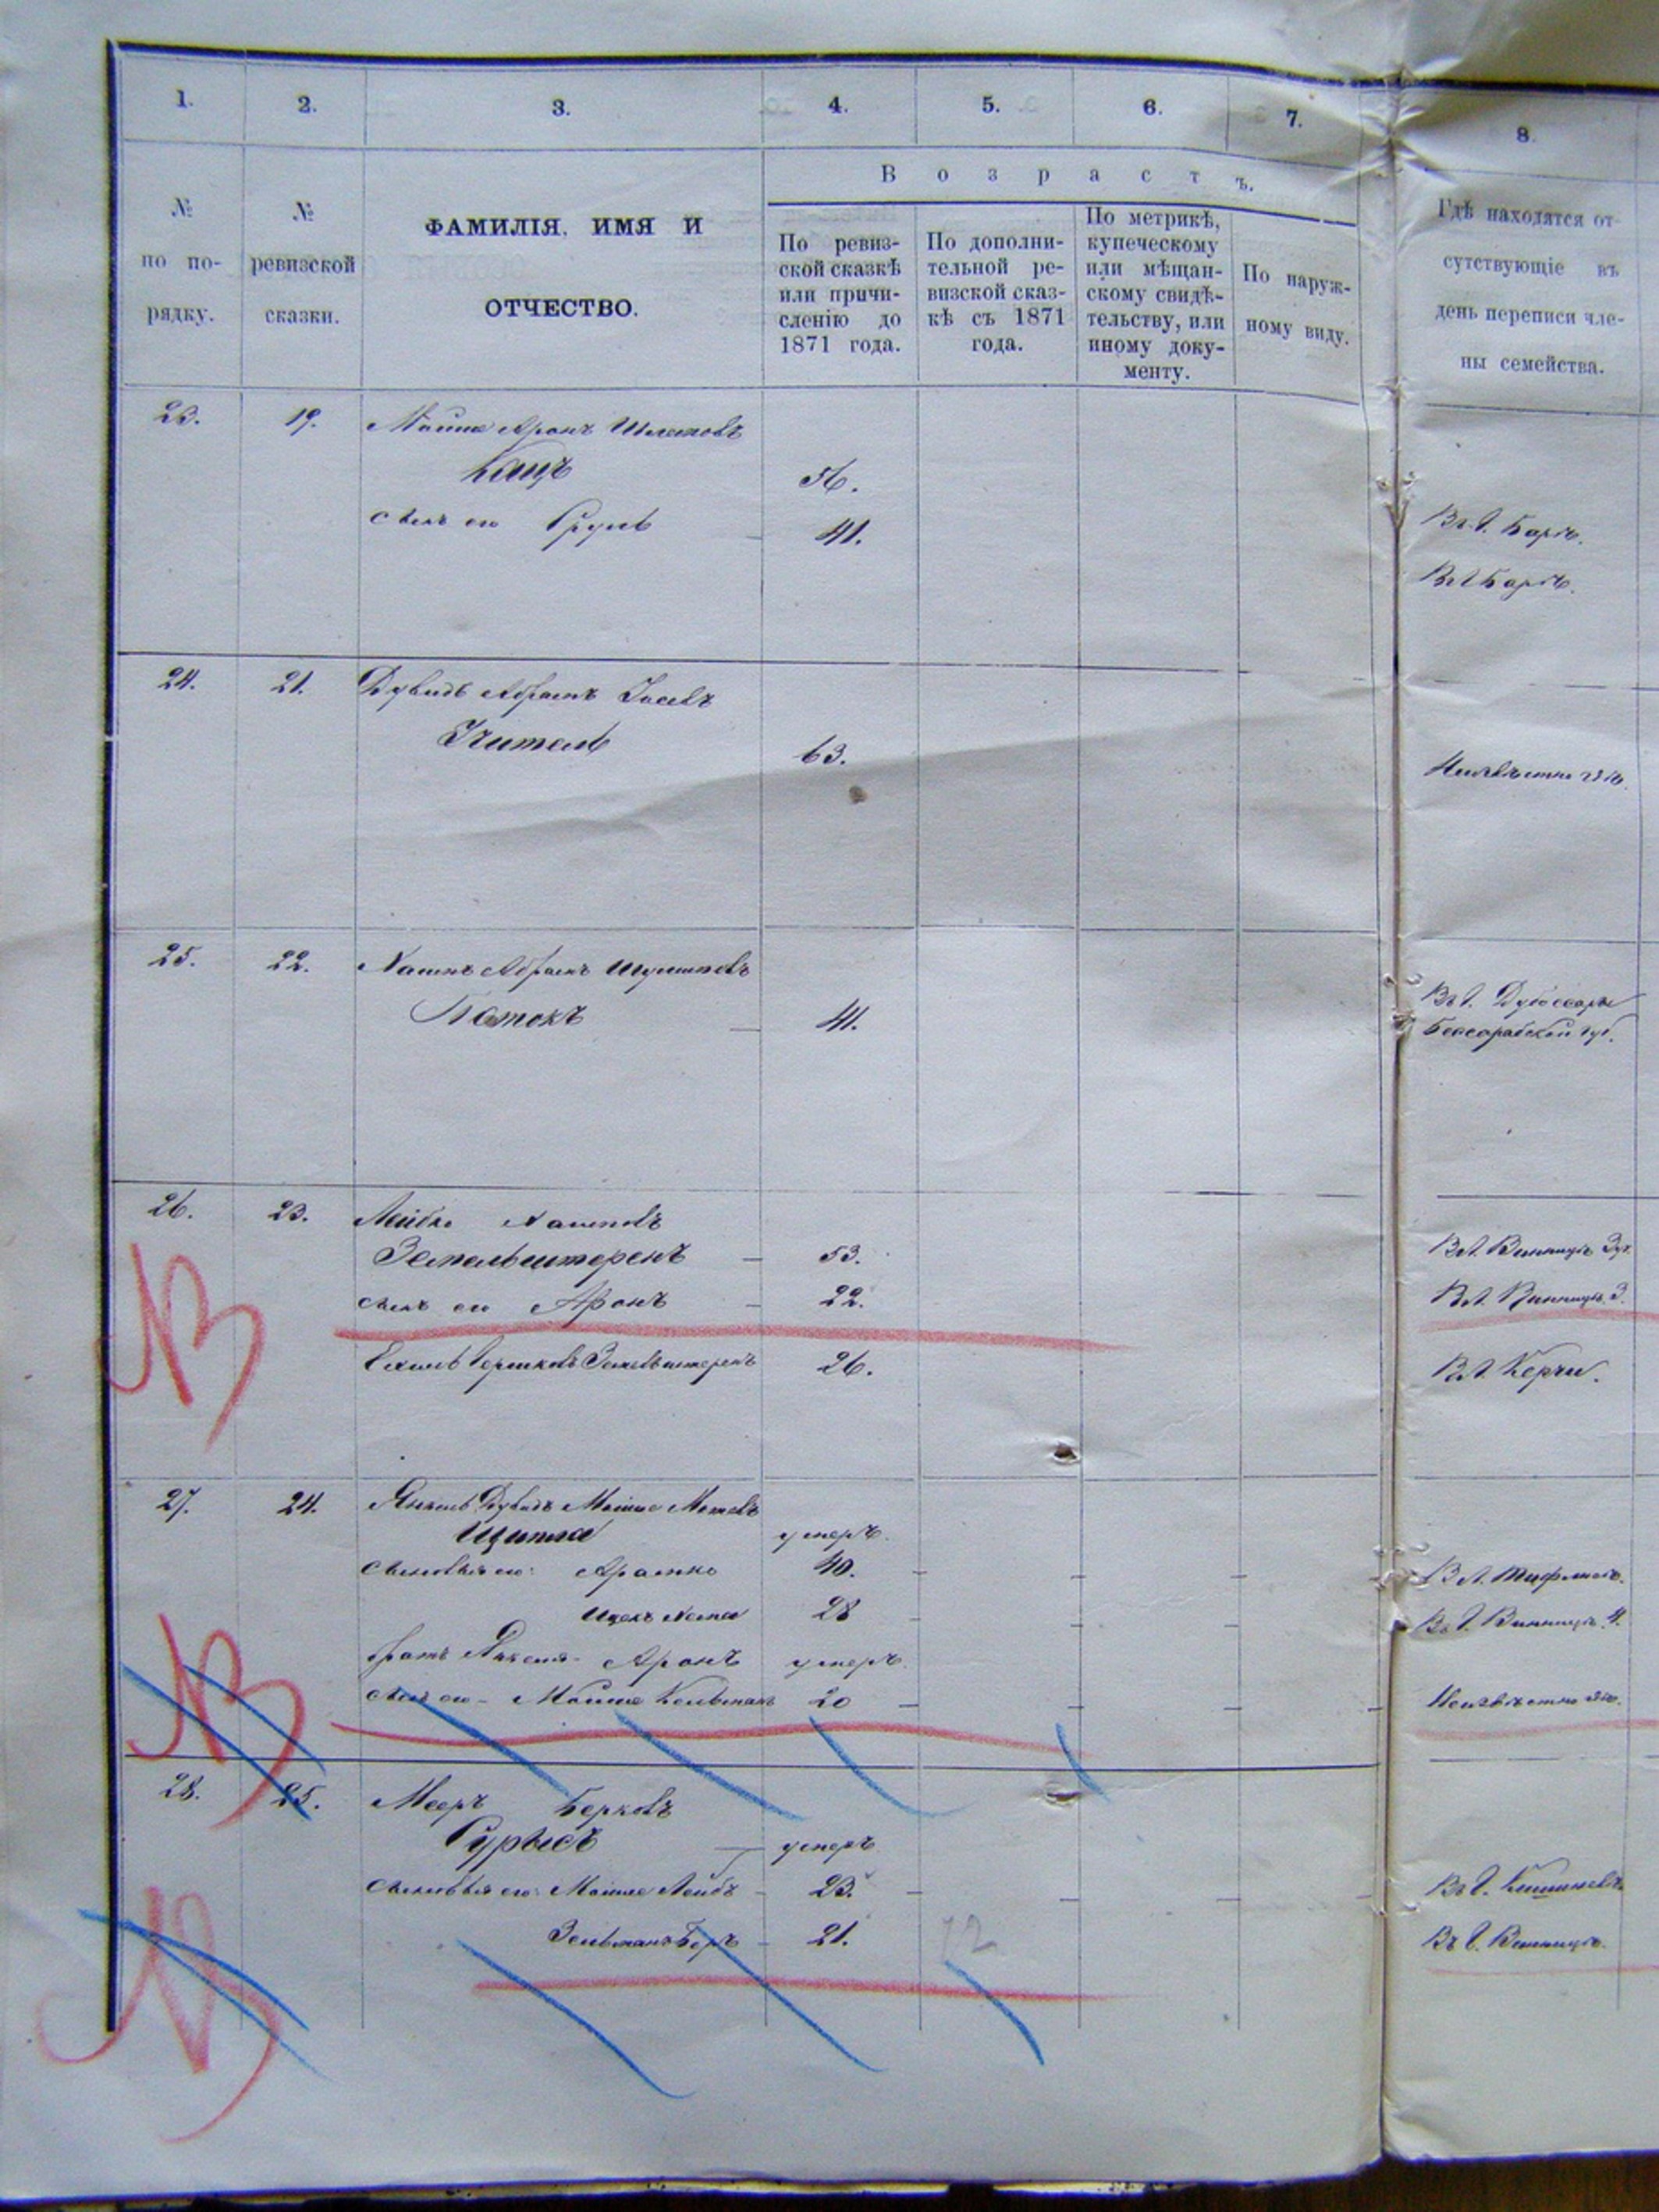 1.
2.
3.
4.
5.
6.
7.
8.
№
по по-
рядку.
№
ревизской
сказки.
ФАМИЛІЯ, ИМЯ И
ОТЧЕСТВО.
Возрастъ.
По ревиз-
ской сказкѣ
или причи-
сленію до
1871 года.
По дополни-
тельной ре-
визской сказ-
кѣ съ 1871
года.
По метрикѣ,
купеческому
или мѣщан-
скому свидѣ-
тельству, или
иному доку-
менту.
По наруж-
ному виду.
Гдѣ находятся от-
сутствующіе въ
день переписи чле-
ны семейства.
23. 19. Мошко Аронъ
Кацъ 56.
сынъ его 41.
Въ г. Барѣ.
Въ г. Барѣ.
24. 21. Дувидъ Абрамъ Іосевъ
Учитель 63.
Неизвѣстно гдѣ.
25. 22. Абрамъ
Потокъ 41.
Въ г. Дубоссары
Бессарабской губ.
26. 23. Лейба
Зетельштеренъ 53. Въ г. Винницѣ
сынъ его Аронъ 22. Въ г. Винницѣ
Гершковъ 26. Въ г. Керчи.
27. 24. Дувидъ Мошко
умеръ.
сыновья его: Арамко 40. Въ г. Тифлисѣ.
Ицекъ 28 Въ г. Винницѣ
братъ Аронъ умеръ.
сынъ его - Мошко Кельманъ 20 Неизвѣстно гдѣ.
28. 25. Мееръ Берковъ
умеръ
сыновья его: Мошко Лейбъ 23. Въ г. Кишиневѣ
Зельманъ Беръ 21. Въ г. Винницѣ.
12